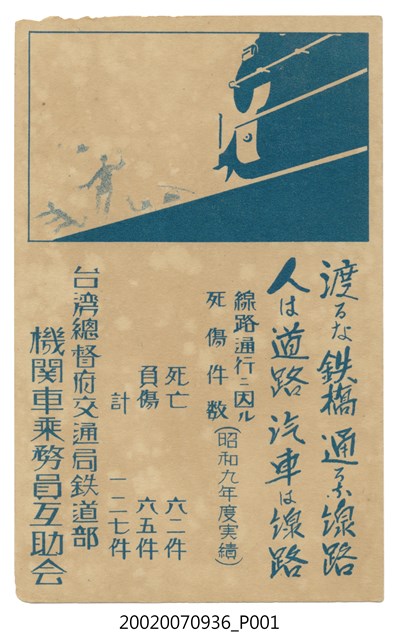 渡るな鉄橋 通るな線路
人は道路 汽車は線路
線路通行ニ因ル
死傷件数(昭和九年度実績)
死亡 六二件
負傷 六五件
計 一二七件
台湾總督府交通局鉄道部
機関車乗務員互助会
20020070936_P001